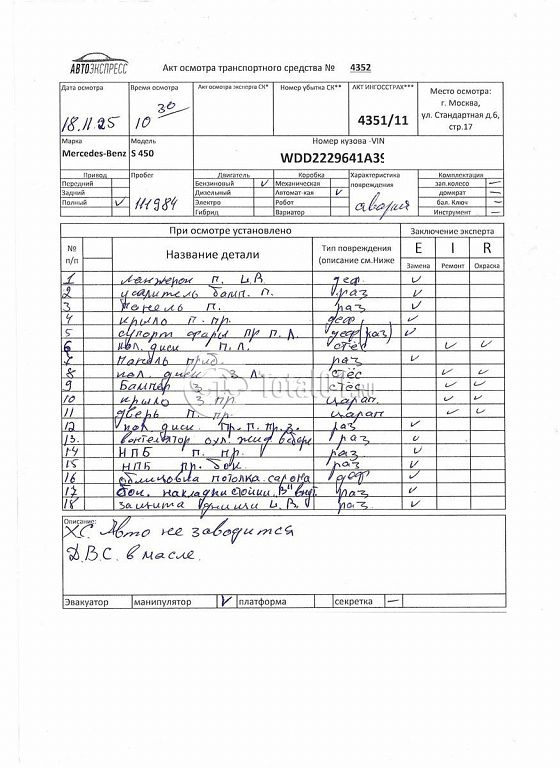 АВТОЭКСПРЕСС
Акт осмотра транспортного средства № 4352
Дата осмотра Время осмотра Акт осмотра эксперта СК* Номер убытка СК** АКТ ИНГОССТРАХ*** Место осмотра:
18.11.25 10 30 4351/11 г. Москва,
ул. Стандартная д.6,
стр.17
Марка Модель Номер кузова -VIN
Mercedes-Benz S 450 WDD2229641A39
Привод Пробег Двигатель Коробка Характеристика повреждения Комплектация
Передний 111984 Бензиновый V Механическая авария зап.колесо —
Задний Дизельный Автомат-кая V домкрат —
Полный V Электро Робот бал. Ключ —
Гибрид Вариатор Инструмент —
При осмотре установлено Заключение эксперта
№ п/п Название детали Тип повреждения (описание см.Ниже E I R
Замена Ремонт Окраска
1 ланжерон п. деф. V
2 усилитель бамп. п. раз V
3 панель п. раз V
4 крыло п. пр. деф. V
5 суппорт фары пр п. л. деф(раз) V
6 кол. диск п. л. стёс V V
7 панель приб. раз V
8 кол. диск з. л. стёс V V
9 бампер з. стёс V V
10 крыло з. пр. царап. V V
11 дверь п. пр. царап V V
12 кол. диск. пр. п. пр. з. раз V
13. вентилятор охл. жид раз V
14 НПБ п. пр. раз. V
15 НПБ пр. бок. раз V
16 облицовка потолка салона деф V
17 бок. накладки стойки "В" внут. раз. V
18 защита днища раз. V
Описание:
ХС. Авто не заводится
Д.В.С. в масле.
Эвакуатор манипулятор V платформа секретка —
Total01.ru